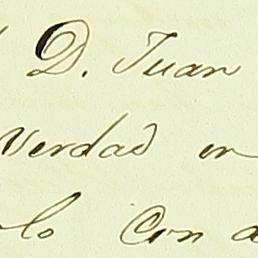 D. Juan
Verdad en
lo Con a